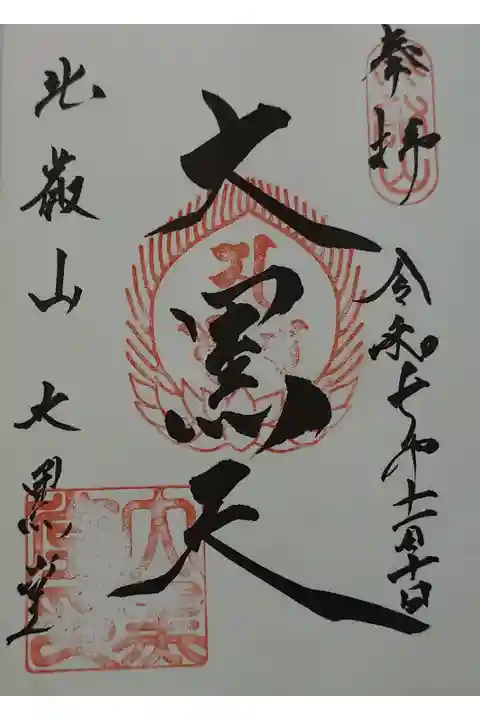 奉拝
令和七年十一月十日
大黒天
比叡山 大黒堂